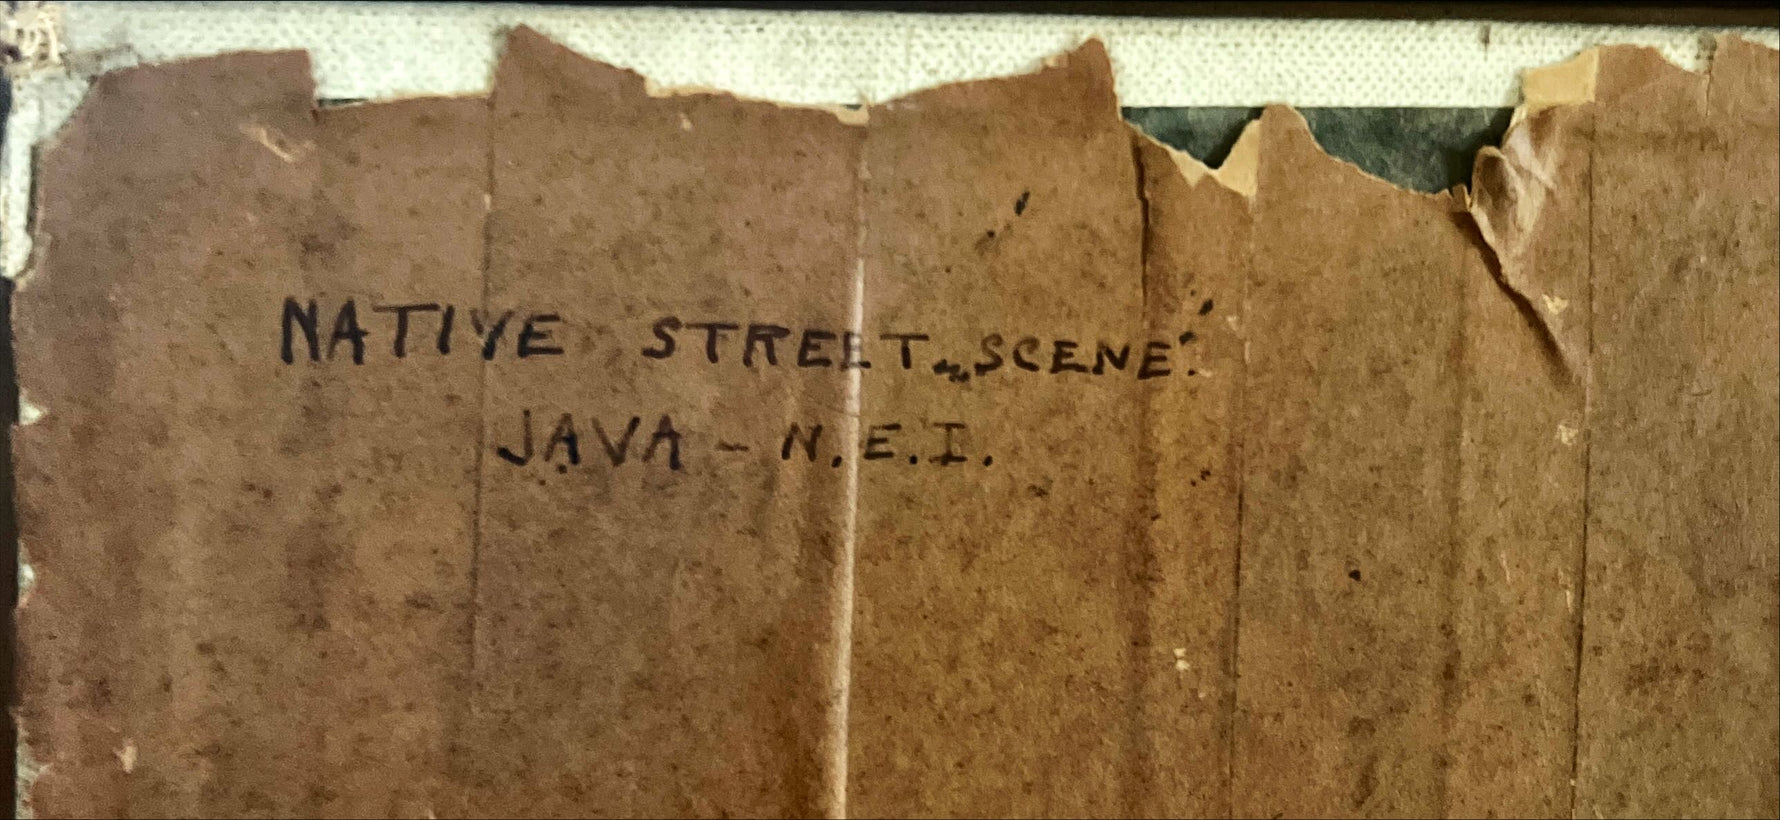 NATIVE STREET SCENE.
JAVA - N.E.I.